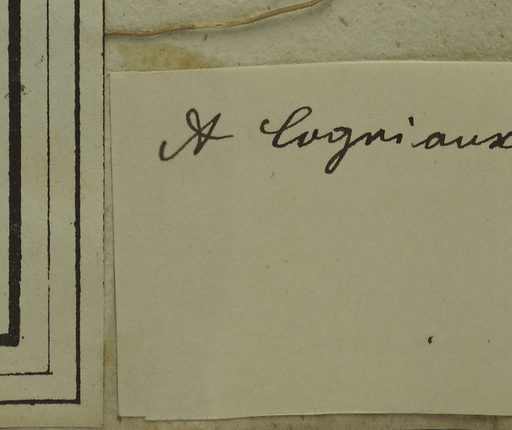 A Cogniaux